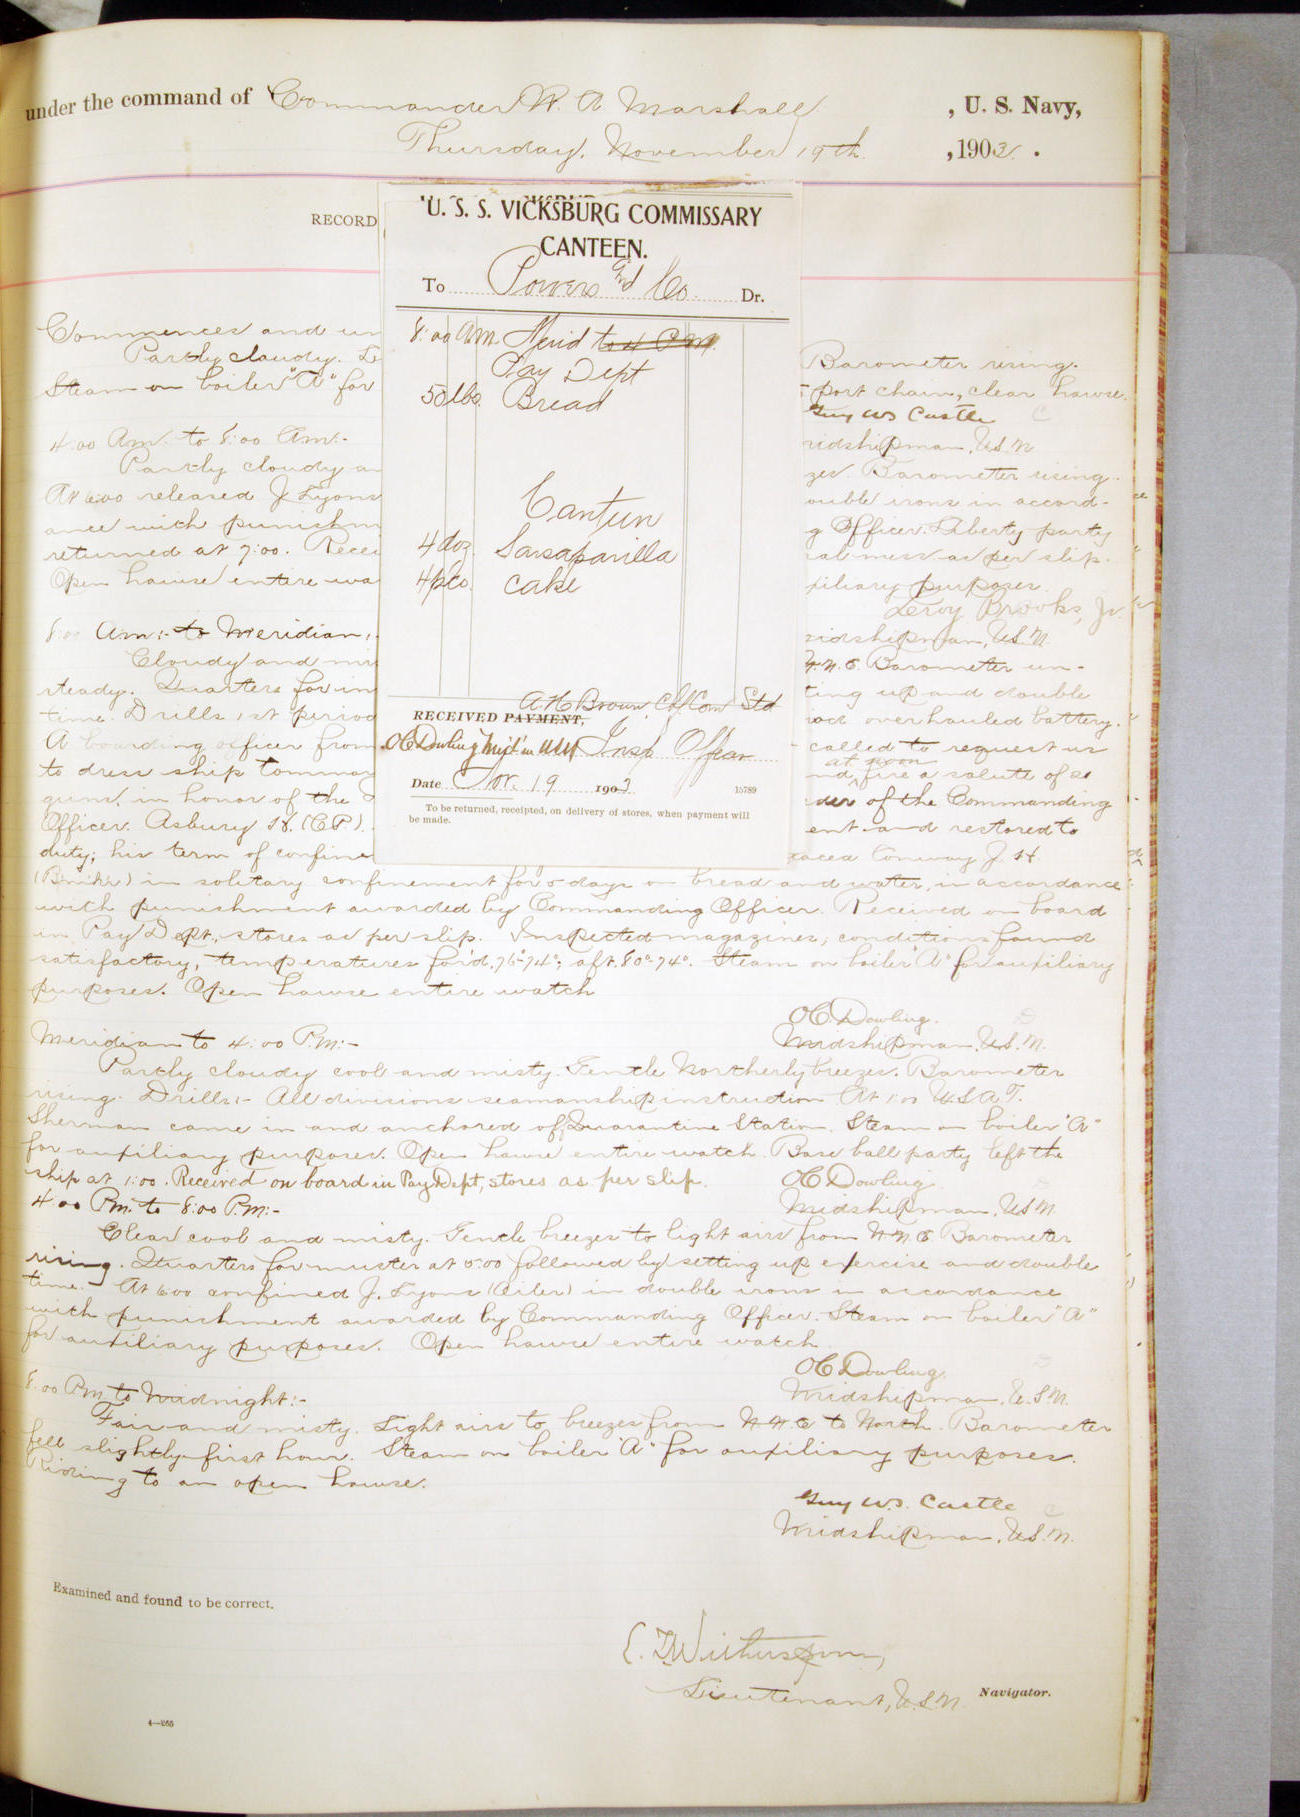 under the command of Commander W. A. Marshall , U. S. Navy,
Thursday, November 19th , 1903 .
RECORD
U. S. S. VICKSBURG COMMISSARY
CANTEEN.
To Powers and Co. Dr.
8:00 A.M. Merid to 4 P.M.
Pay Dept
50 lbs. Bread
Canteen
4 doz. Sarsaparilla
4 pcs. Cake
A H Brown, Com Std
RECEIVED PAYMENT,
O C Dowling Mid'n USN Insp Officer
Date Nov. 19 1903 15789
To be returned, receipted, on delivery of stores, when payment will
be made.
Commences and un
Partly cloudy. Barometer rising.
Steam on boiler "A" for port chain, clear hawse.
Guy W. S. Castle
Midshipman, U.S.N.
4:00 Am. to 8:00 Am:-
Partly cloudy an Barometer rising.
At 6:00 released J. Lyons double irons in accord-
ance with punishm g Officer. Liberty party
returned at 7:00. Recei mess as per slip.
Open hawse entire wa xiliary purposes.
Leroy Brooks, Jr.
Midshipman, U.S.N.
8:00 Am:- to Meridian:-
Cloudy and mi N.N.E. Barometer un-
steady. Quarters for in ting up and double
time. Drills 1st period overhauled battery.
A boarding officer from called to request us
at noon
to dress ship and fire a salute of 21
guns, in honor of the order of the Commanding
Officer. Asbury H. (C.P.) ent and restored to
duty; his term of confine Conway J. H.
in solitary confinement for 5 days on bread and water, in accordance
with punishment awarded by Commanding Officer. Received on board
in Pay Dept., stores as per slip. Inspected magazines, conditions found
satisfactory, temperatures for'd. 76°-74°; aft. 80°-74°. Steam on boiler "A" for auxiliary
purposes. Open hawse entire watch
O C Dowling.
Midshipman, U.S.N.
Meridian to 4:00 P.M:-
Partly cloudy cool and misty. Gentle Northerly breezes. Barometer
rising. Drills:- All divisions seamanship instruction. At 1:00 U.S.A.T.
Sherman came in and anchored off Quarantine Station. Steam on boiler "A"
for auxiliary purposes. Open hawse entire watch. Base ball party left the
ship at 1:00. Received on board in Pay Dept, stores as per slip.
O C Dowling
Midshipman, U.S.N.
4:00 Pm. to 8:00 P.M:-
Clear cool and misty. Gentle breezes to light airs from N.N.E. Barometer
rising. Quarters for muster at 5:00 followed by setting up exercise and double
time. At 6:00 confined J. Lyons (Oiler) in double irons in accordance
with punishment awarded by Commanding Officer. Steam on boiler "A"
for auxiliary purposes. Open hawse entire watch.
O C Dowling
Midshipman, U.S.N.
8:00 Pm to Midnight:-
Fair and misty. Light airs to breezes from N.N.E. to North. Barometer
fell slightly first hour. Steam on boiler "A" for auxiliary purposes.
Riding to an open hawse.
Guy W. S. Castle
Midshipman, U.S.N.
Examined and found to be correct.
C. T. Witherspoon,
Lieutenant, U.S.N. Navigator.